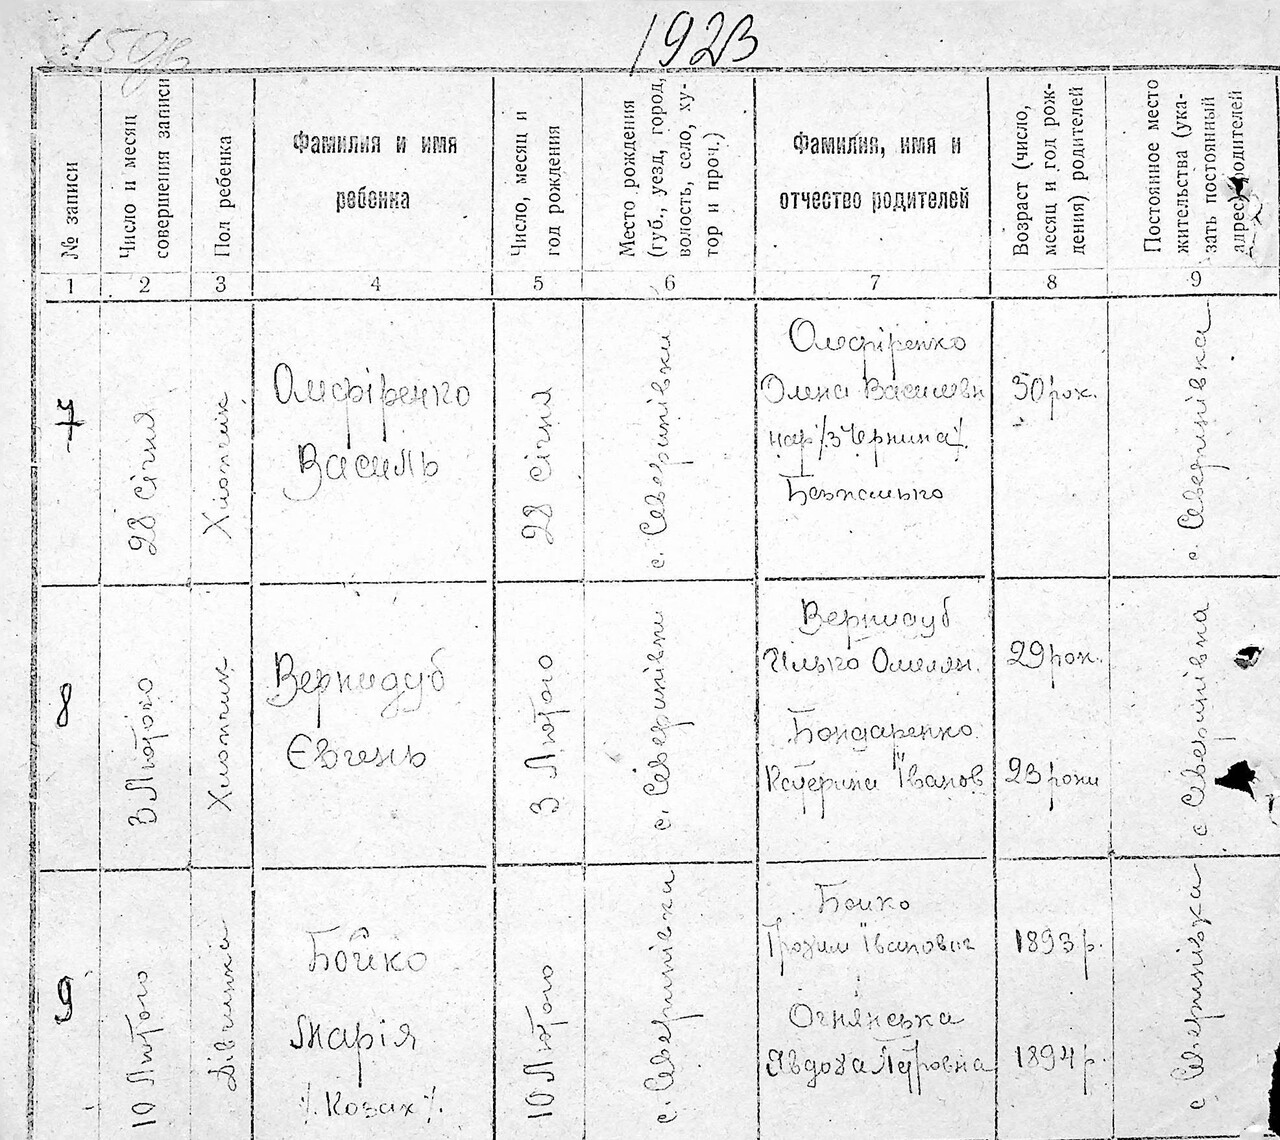 1923
№ записи
Число и месяц
совершения записи
Пол ребенка
Фамилия и имя
ребенка
Число, месяц и
год рождения
Место рождения
(губ., уезд, город,
волость, село, ху-
тор и проч.)
Фамилия, имя и
отчество родителей
Возраст (число,
месяц и год рож-
дения) родителей
Постоянное место
жительства (ука-
зать постоянный
адрес) родителей
1 2 3 4 5 6 7 8 9
7
28 Січня
Хлопчик
Олефіренко
Василь
28 Січня
с. Северинівки
Олефіренко
Олена Василевн
30 рок.
с. Северинівка
8
3 Лютого
Хлопчик
Вернидуб
Євгень
3 Лютого
с. Северинівки
Вернидуб
Ілько Омелян.
29 рок.
Бондаренко
Катерина Іванов
23 роки
с Северинівка
9
10 Лютого
Дівчинка
Бойко
Марія
/. Козах /.
10 Лютого
с. Северинівка
Бойко
Трохим Іванович
1893 р.
Огнянська
Явдоха Петровна
1894 р.
с Северинівка